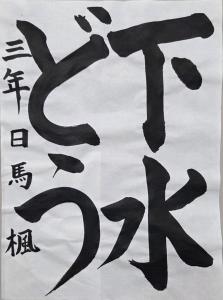 下水
どう
三年日馬楓